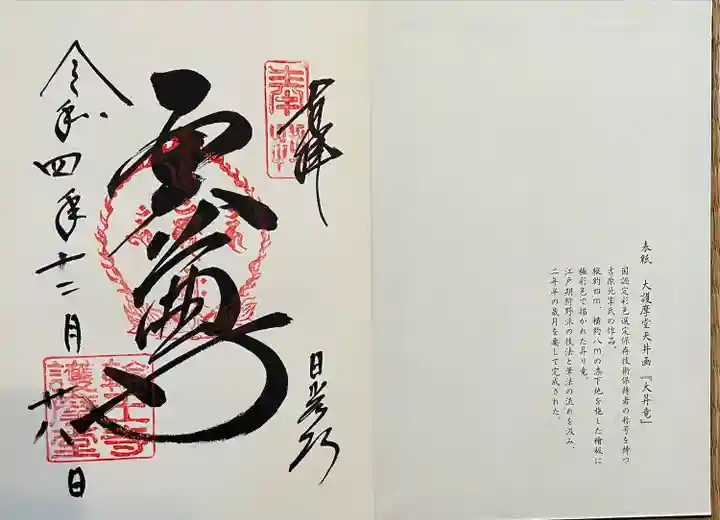 表紙 大護摩堂天井画『大昇竜』
国認定彩色選定保存技術保持者の称号を持つ
吉原北宰氏の作品。
縦約四m 横約八mの漆下地を施した檜板に
極彩色で描かれた昇り竜。
江戸期狩野派の技法と筆法の流れを汲み、
二年半の歳月を要して完成された。
奉拝
日光山
令和四年十二月廿八日
輪王寺
護摩堂